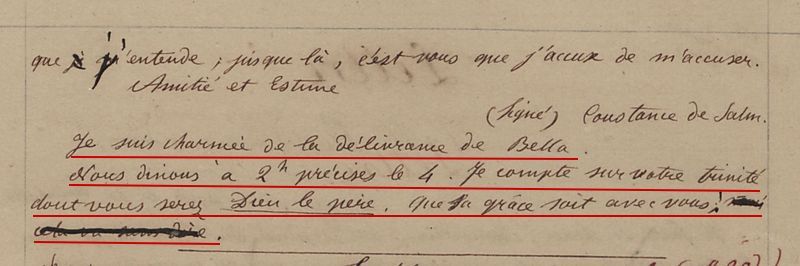 que j'entende ; jusque là, c'est vous que j'accuse de m'accuser.
Amitié et Estime
(Signé) Constance de Salm.
Je suis charmée de la délivrance de Bella.
Nous dinons à 2h précises le 4. Je compte sur votre trinité
dont vous serez Dieu le père. Que sa grâce soit avec vous !
cela va sans dire.